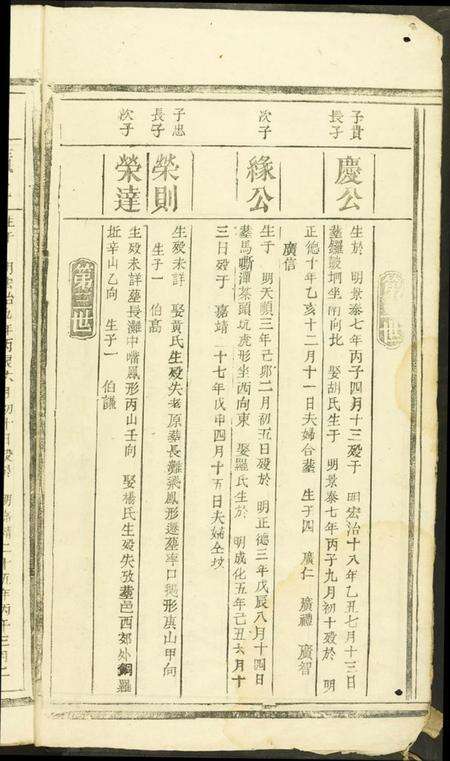 子貴
長子
慶公
生於 明景泰七年丙子四月十三歿于 明宏治十八年乙丑七月十三日
墓鑼鼓坰坐南向北 娶胡氏生于 明景泰七年丙子九月初十歿於 明
正德十年乙亥十二月十一日夫婦合墓 生子四 廣仁 廣禮 廣智
廣信
次子
緣公
生于 明天順三年己卯二月初五日歿於 明正德三年戊辰八月十四日
墓馬嘶潭茶頭坑虎形坐西向東 娶羅氏生於 明成化五年己丑六月十
三日歿于 嘉靖 十七年戊申四月十五日夫婦仝坟
子忠
長子
榮則
生歿未詳 娶黃氏生歿失考原墓長灘飛鳳形遷墓寧口 形庚山甲向
生子一 伯高
次子
榮達
生歿未詳墓長灘中嘴鳳形丙山壬向 娶楊氏生歿失攷墓邑西郊外銅羅
坵辛山乙向 生子一 伯謙
第三世